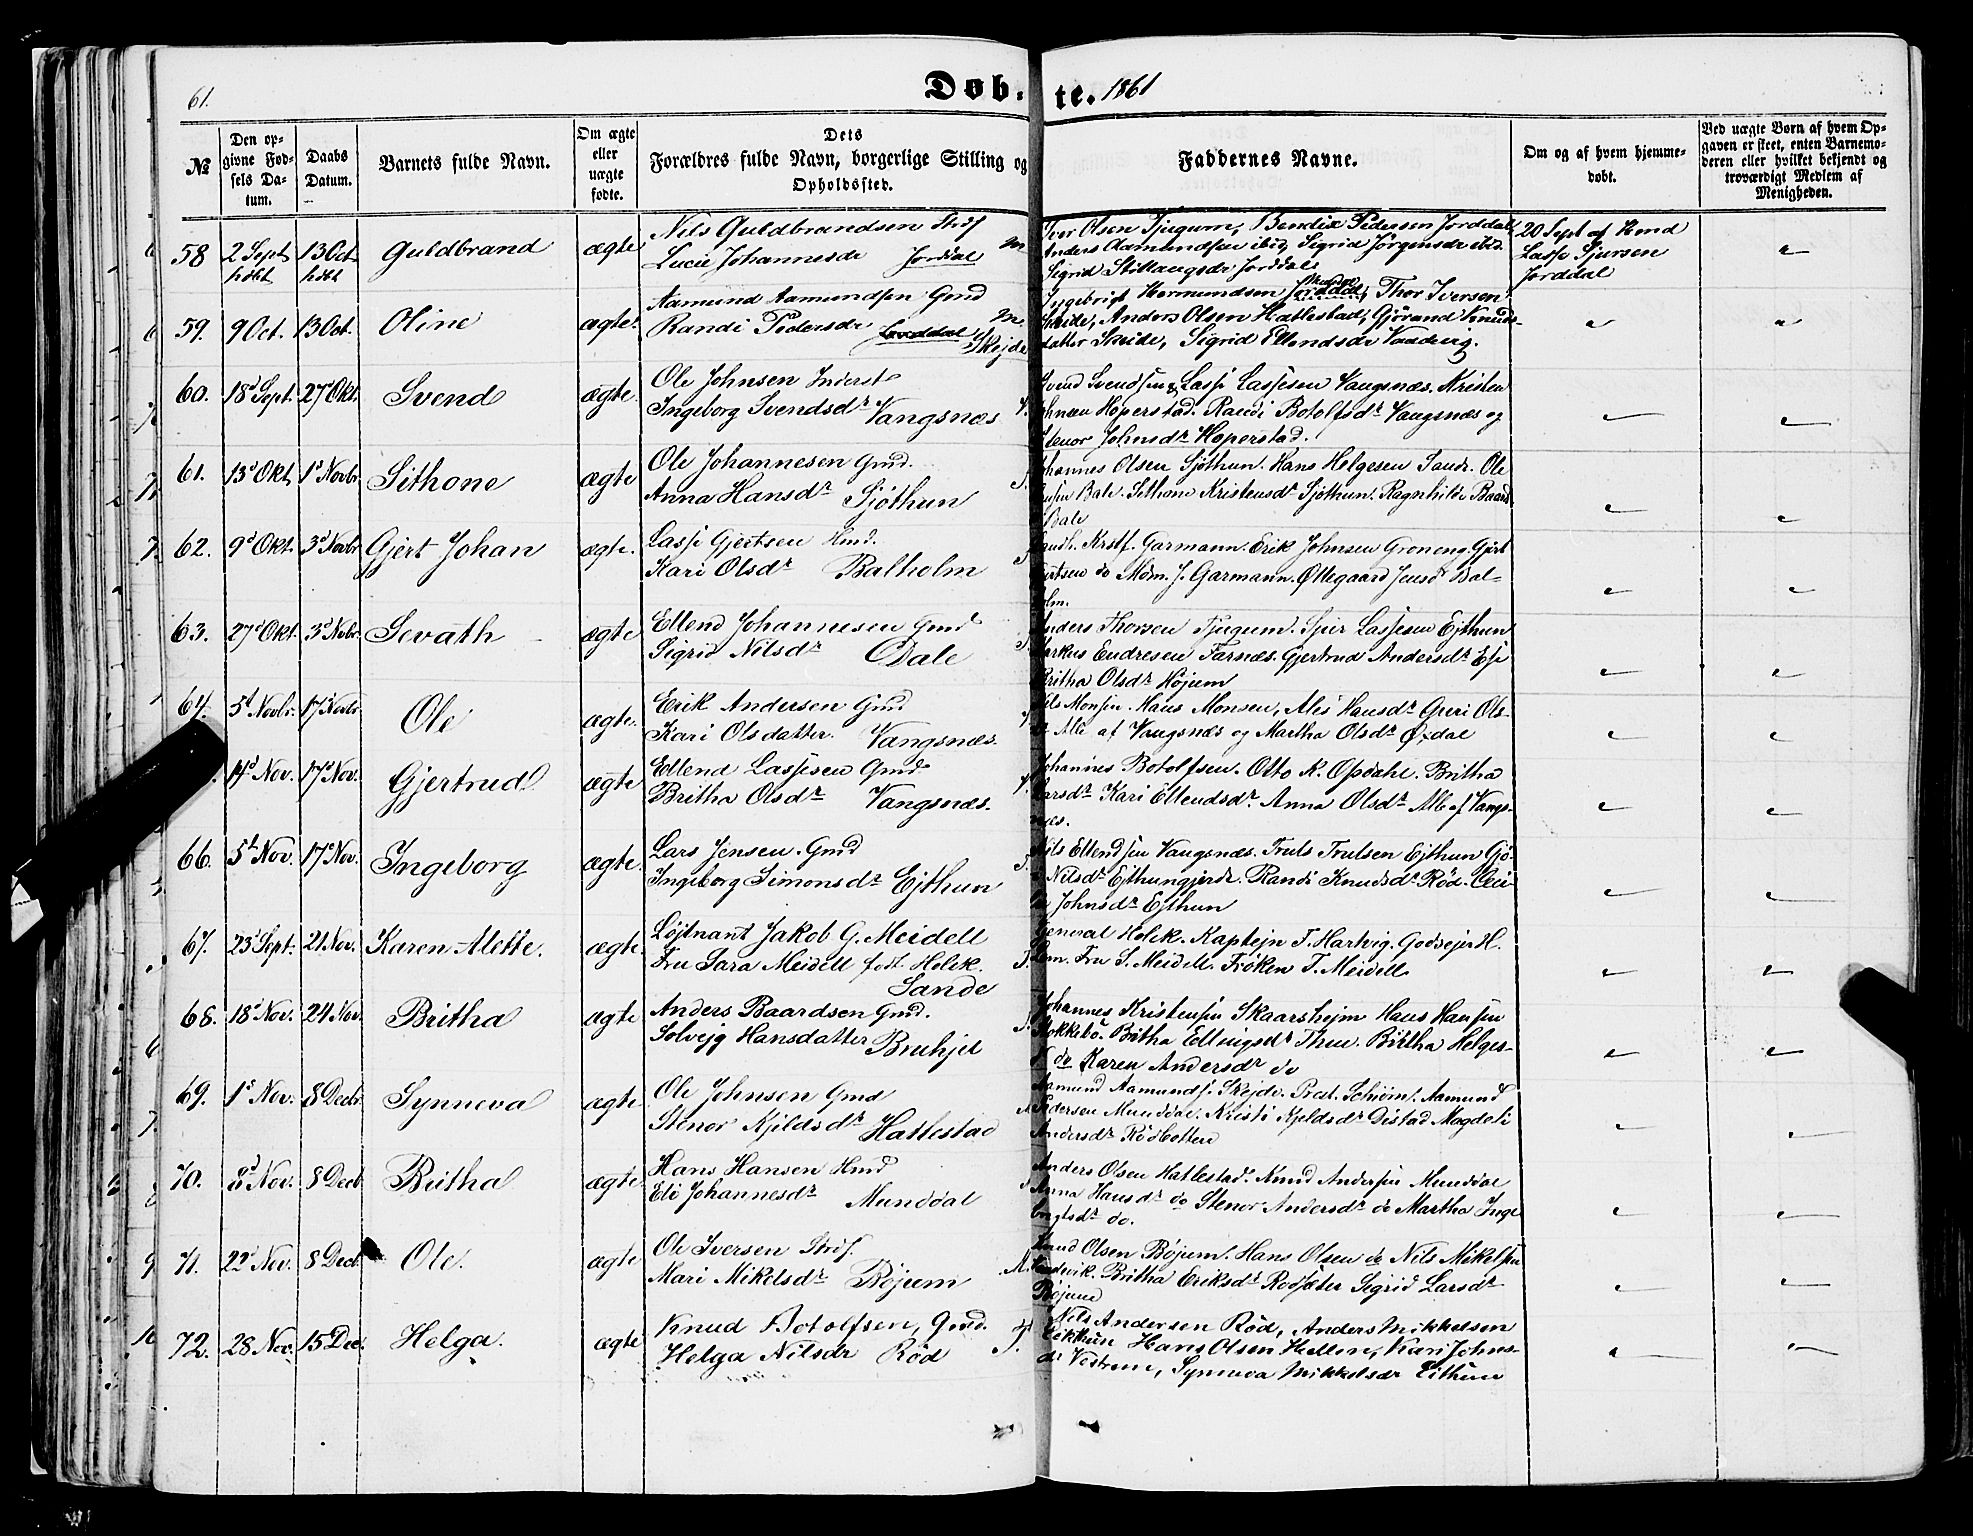 61.
Døbte. 1861
№
Den opgivne Fødsels Datum.
Daabs Datum.
Barnets fulde Navn.
Om ægte eller uægte fødte.
Dets Forældres fulde Navn, borgerlige Stilling og Opholdssted.
Faddernes Navne.
Om og af hvem hjemmedøbt.
Ved uægte Børn af hvem Opgaven er skeet, enten Barnemoderen eller hvilket bekjendt og troværdigt Medlem af Menigheden.
58 2 Sept 13 Oct Guldbrand ægte Nils Guldbrandsen
Lucie Johannesdr Jordal
Olsen Tjugum, Bendix Pedersen Jorddal
Anders Aamundsen ibid, Sigrid Jörgensdr ibid.
Sigrid Stillaugsdr Jorddal
20 Sept af Kmd
Lasse Sjursen
Jorddal
59. 9 Oct. 13 Oct. Oline ægte Aamund Aamundsen Gmd
Randi Pedersdr Skejde
Ingebrigt Hermundsen Thor Iversen
Skeide, Anders Olsen Hatlestad, Gjörand Knuds-
datter Skeide, Sigrid Ellendsdr
60. 18d Sept. 27d Okt. Svend ægte Ole Johnsen Inderst
Ingeborg Svendsdr Vangsnæs
Svend Svendsen & Lasse Lassesen Vangsnæs. Kristen
Johnsen Hoperstad. Randi Botolfsdr Vangsnæs og
Stenor Johnsdr Hoperstad.
61. 13d Okt. 1d Novbr. Sithone ægte Ole Johannesen Gmd.
Anna Hansdr Sjöthun
Johannes Olsen Sjöthun. Hans Helgesen Ole
Bale. Sithone Kristensdr Sjöthun. Ragnhilde Baard
Bale
62. 9d Okt. 3d Novbr Gjert Johan ægte. Lasse Gjertsen Hmd.
Kari Olsdr Balholm
Landh. Krstf. Garmann. Erik Johnsen Groneng. Gjert
Gjertsen do Mdm. J. Garmann. Jensdr Bal-
holm.
63. 27d Okt. 3d Nobr. Sevath ægte Ellend Johannesen Gmd
Sigrid Nilsdr Dale
Anders Thorsen Tjugum. Lassesen Ejthun
Markus Endresen Farnæs. Gjertrud Andersdr Ese
Britha Olsdr Höjum
64. 5t Novbr. 17d Novbr Ole ægte. Erik Andersen Gmd
Kari Olsdatter. Vangsnæs.
Nils Monsen. Hans Monsen, Hansdr Ols-
dr Alle af Vangsnæs og Martha Olsdr Oxdal
14d Nov. 17d Nov. Gjertrud ægte Ellend Lassesen Gmd
Britha Olsdr Vangsnæs.
Johannes Botolfsen. Otto K. Opdahl. Britha
Larsdr Kari Ellendsdr. Anna Olsdr Alle af Vangs-
næs.
66. 5t Nov. 17d Nov. Ingeborg ægte Lars Jensen. Gmd
Ingeborg Simonsdr Ejthun
Nils Ellendsen Vangsnæs. Truls Trulsen Ejthun Gjö-
Nilsdr Ejthungjerde. Randi Knudsdr Röd. Ceci-
lia Johnsdr Ejthun
67. 23d Sept. 21 Nov. Karen Alette. ægte Löjtnant Jakob G. Meidell
Fru Sara Meidell født Holck.
Sande
General Holck. Kaptejn T. Hartvig. Godsejer H.
Fru S. Meidell. Fröken T. Meidell
68. 18d Nov. 24 Nov. Britha ægte Anders Baardsen Gmd.
Solvejg Hansdatter
Johannes Kristensen Skaarshejm Hans Hansen
Stokkebö. Britha Ellingsdr Thue. Britha Helges-
dr do Karen Andersdr do
69. 1s Nov. 8 Decbr Synneva ægte Ole Johnsen Gmd
Stenor Kjeldsdr Hatlestad
Aamund Aamunds. Skejde. Aamund
Pedersen Munddal. Kristi Kjeldsdr Distad Magdeli
Andersdr Rödbotten
70. 8d Nov. 8 Decb Britha ægte Hans Hansen Hmd
Eli Johannesdr Munddal
Anders Olsen Hatlestad. Knud Andersen Munddal
Anna Hansdr do Stenor Andersdr do Martha Inge
brigtsdr do.
71. 22d Nov. 8 Decb Ole. ægte Ole Iversen
Mari Mikelsdr Böjum
Knud Olsen Böjum. Hans Olsen do Nils Mikelsen
Britha Eriksdr Rödseter Sigrid Larsdr
Böjum
72. 28 Nov. 15 Dec. Helga. ægte Knud Botolfsen, Gmd.
Helga Nilsdr Röd
Nils Andersen Röd, Anders Mikkelsen
Eikthun Hans Olsen Kari Johns-
dr Vestrem, Synneva Mikkelsdr Eithun